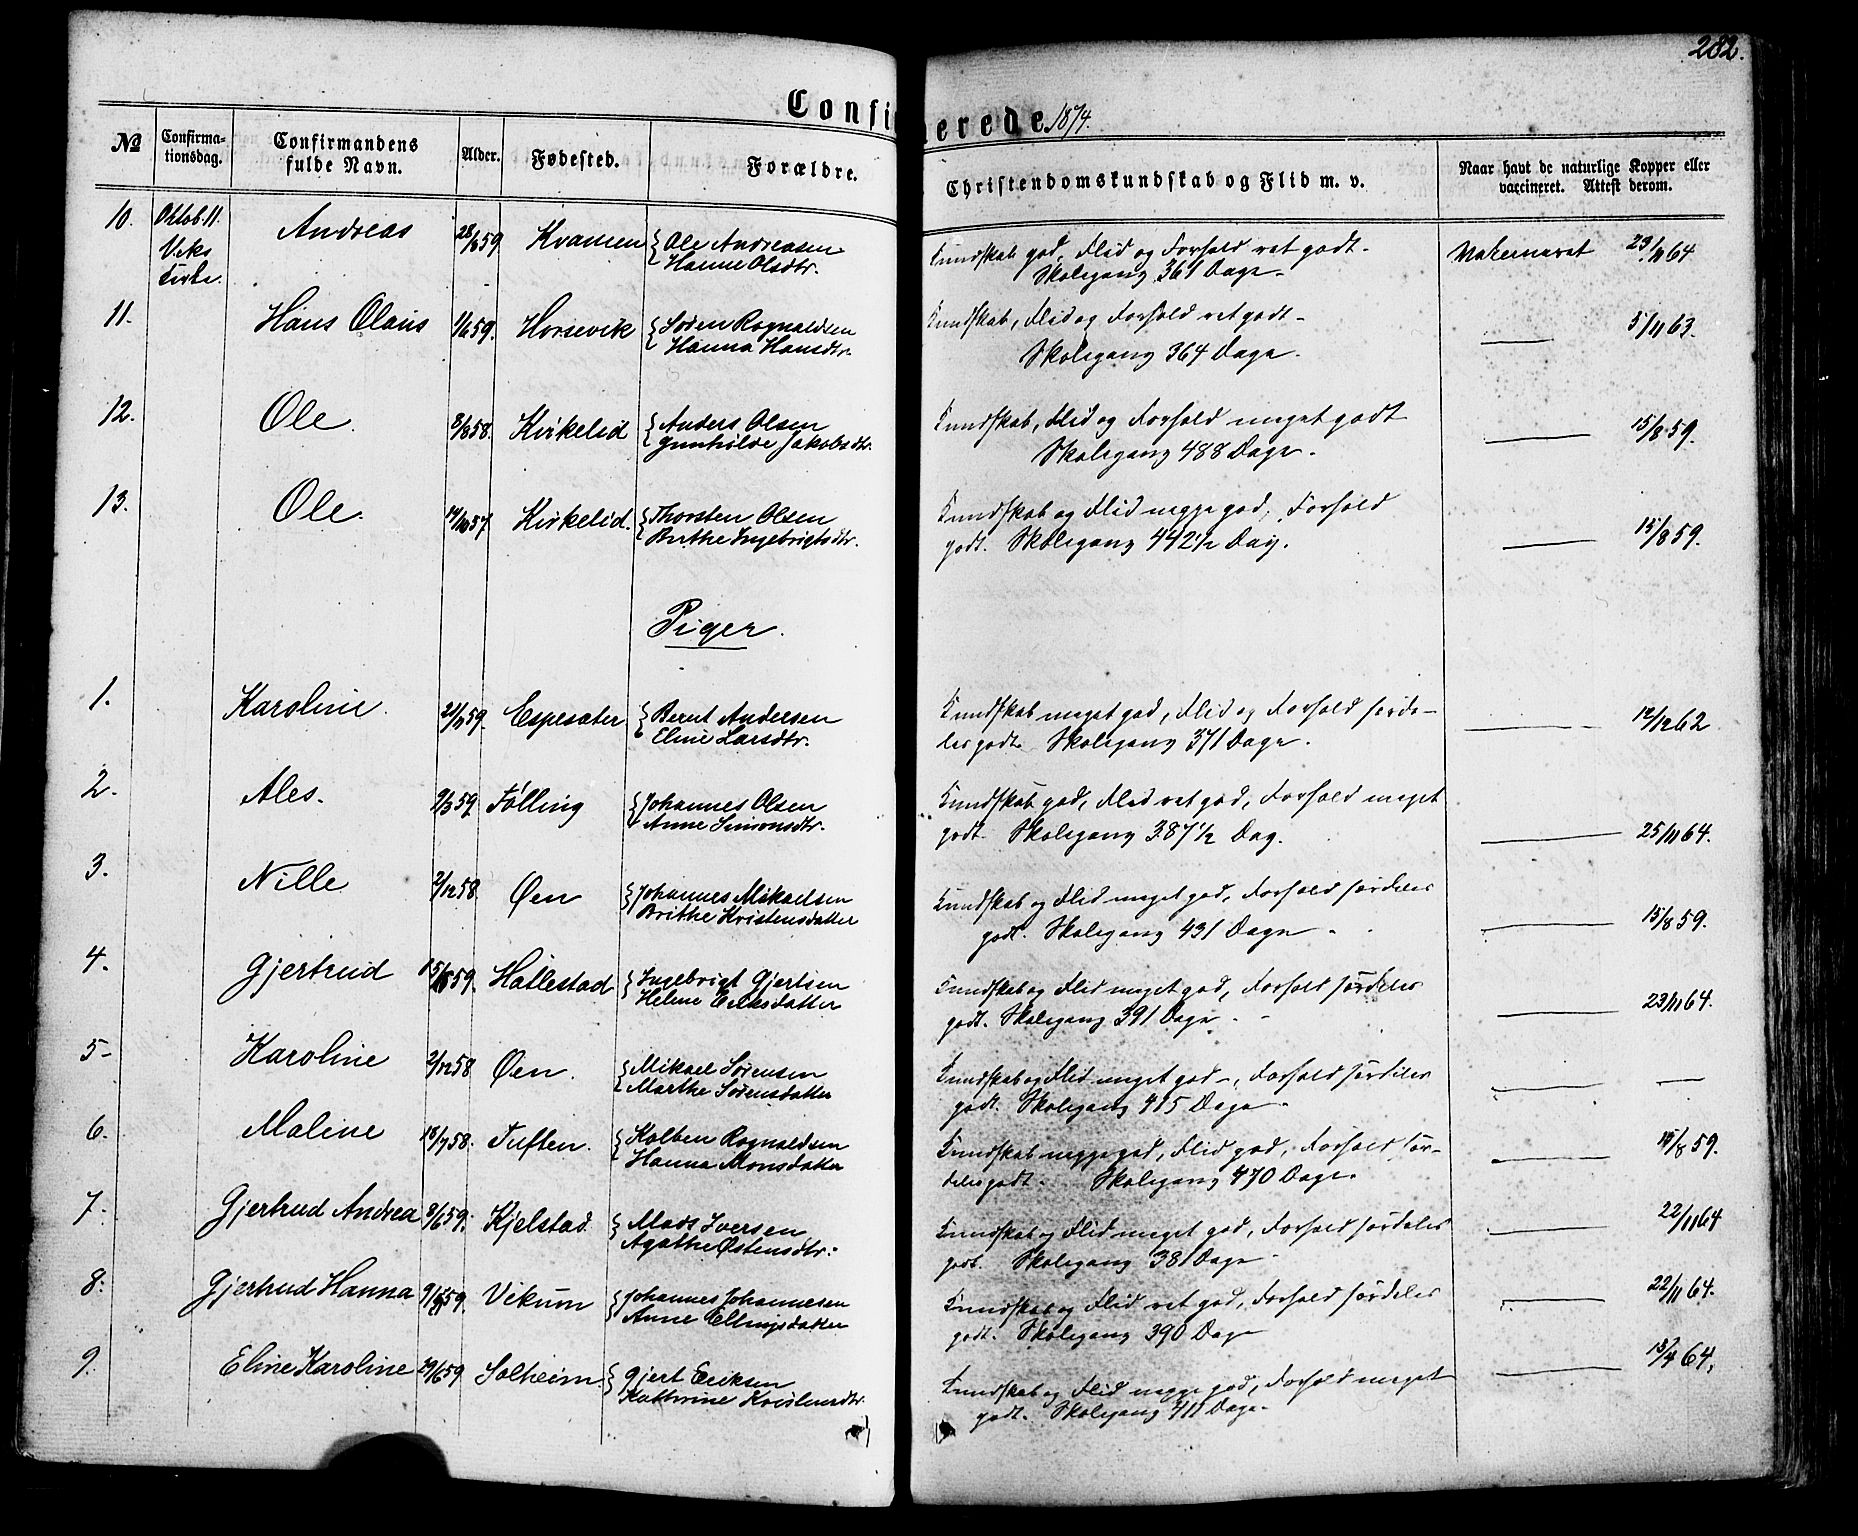 282.
Confi erede 1874.
No Confirma-tionsdag. Confirmandens fulde Navn. Alder. Fødested. Forældre. Christendomskundskab og Flid m. v. Naar havt de naturlige Kopper eller vaccineret. Attest derom.
10. Oktob. 11. Andreas 28/6 59 Kvamen Ole Andreasen Kundskab god, Flid og Forhold ret godt. 64
Hanne Olsdtr. Skolegang 361 Dage.
11. Hans Olaus 1/6 59. Horsevik Søren Rognaldsen Kundskab, Flid og Forhold ret godt. 5/11 63.
Hanna Hansdtr. Skolegang 364 Dage.
12. Ole. 3/8 58. Kirkelid Anders Olsen Kundskab, Flid og Forhold meget godt 15/8 59.
Gunhilde Jakobsdtr. Skolegang 488 Dage.
13. Ole. 14/10 57 Kirkelid. Thorsten Olsen Kundskab og Flid megge god, Forhold 15/8 59.
Brithe Ingebrigtsdtr. godt. Skolegang 442 1/2 Dag.
Piger.
1. Karoline. 59. Espesæter Bernt Andersen Kundskab meget god, Flid og Forhold særde- 12/12 62
Eline Larsdtr. les godt. Skolegang 371 Dage.
2. Ales. 9/3 59 Følling Johannes Olsen Kundskab god, Flid ret god, Forhold meget
Anne Simonsdtr. godt. Skolegang 387 1/2 Dag. 25/11 64.
3. Nille 2/12 58. Øen Johannes Mikaelsen Kundskab og Flid meget god, Forhold særdeles
Brithe Kristensdatter godt. Skolegang 431 Dage 15/8 59.
4. Gjertrud 59. Hallestad Ingebrigt Gjertsen Kundskab og Flid meget god, Forhold særdeles
Helene Eriksdatter godt. Skolegang 391 Dage 23/11 64.
5- Karoline 2/12 58 Øen. Mikael Sørensen Kundskab og Flid meget god, Forhold særdeles
Marthe Sørensdatter godt. Skolegang 415 Dage
6. Maline 18/7 58. Tuften. Kolben Rognaldsen Kundskab megge god, Flid god, Forhold sær- 15/8 59.
Hanna Monsdatter deles godt. Skolegang 470 Dage.
7. Gjertrud Andrea 8/6 59. Kjelstad Mads Iversen Kundskab og Flid meget god, Forhold særdeles 22/11 64
Agathe Østensdtr. godt. Skolegang 381 Dage
8. Gjertrud Hanna 59. Vikum Johannes Johannesen Kundskab og Flid ret god, Forhold særdeles 22/11 64.
Anne Ellingsdatter godt. Skolegang 390 Dage
9. Eline Karoline 29/6 59 Solheim. Gjert Eriksen Kundskab og Flid megge god, Forhold meget 64,
Kathrine Kristensdtr. godt. Skolegang 411 Dage.